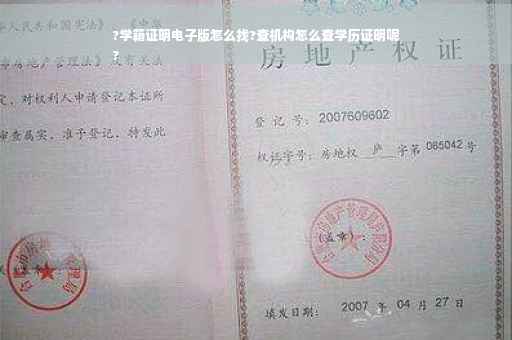 ?学籍证明电子版怎么找?查机构怎么查学历证明呢
?
人民共和国宪法》《中华
房地产管理法》及有关法
定，对权利人申请登记本证所
审查属实，准予登记，特发此
房地产权证
登记号：2007609602
权证字号：房地权 庐 字第 065042 号
(盖章)：
填发日期： 2007 年 04 月 27 日